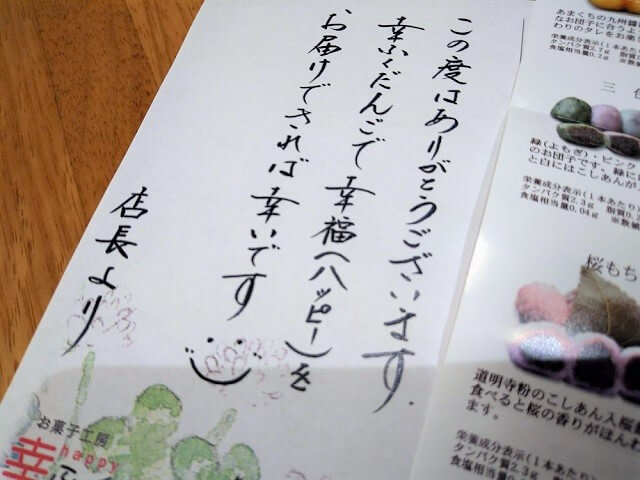 この度はありがとうございます.
幸ふくだんごで幸福(ハッピー)を
お届けできれば幸いです
店長より
お菓子工房
happy
幸
あまくちの九州醤
なお団子に合うよ
わりのタレをお楽し
栄養成分表示(1本あたり)
タンパク質2.7g 脂質
食塩相当量0.2g ※数値
三色
緑(よもぎ)・ピンク
のお団子です。緑に
と白にはこしあんが
栄養成分表示(1本あたり)
タンパク質2.3g 脂質
食塩相当量0.04g ※数値
桜もち
道明寺粉のこしあん入桜餅
食べると桜の香りがほんわ
ます。
栄養成分表示(1本あたり)
タンパク質2.3g 脂
食塩相当量